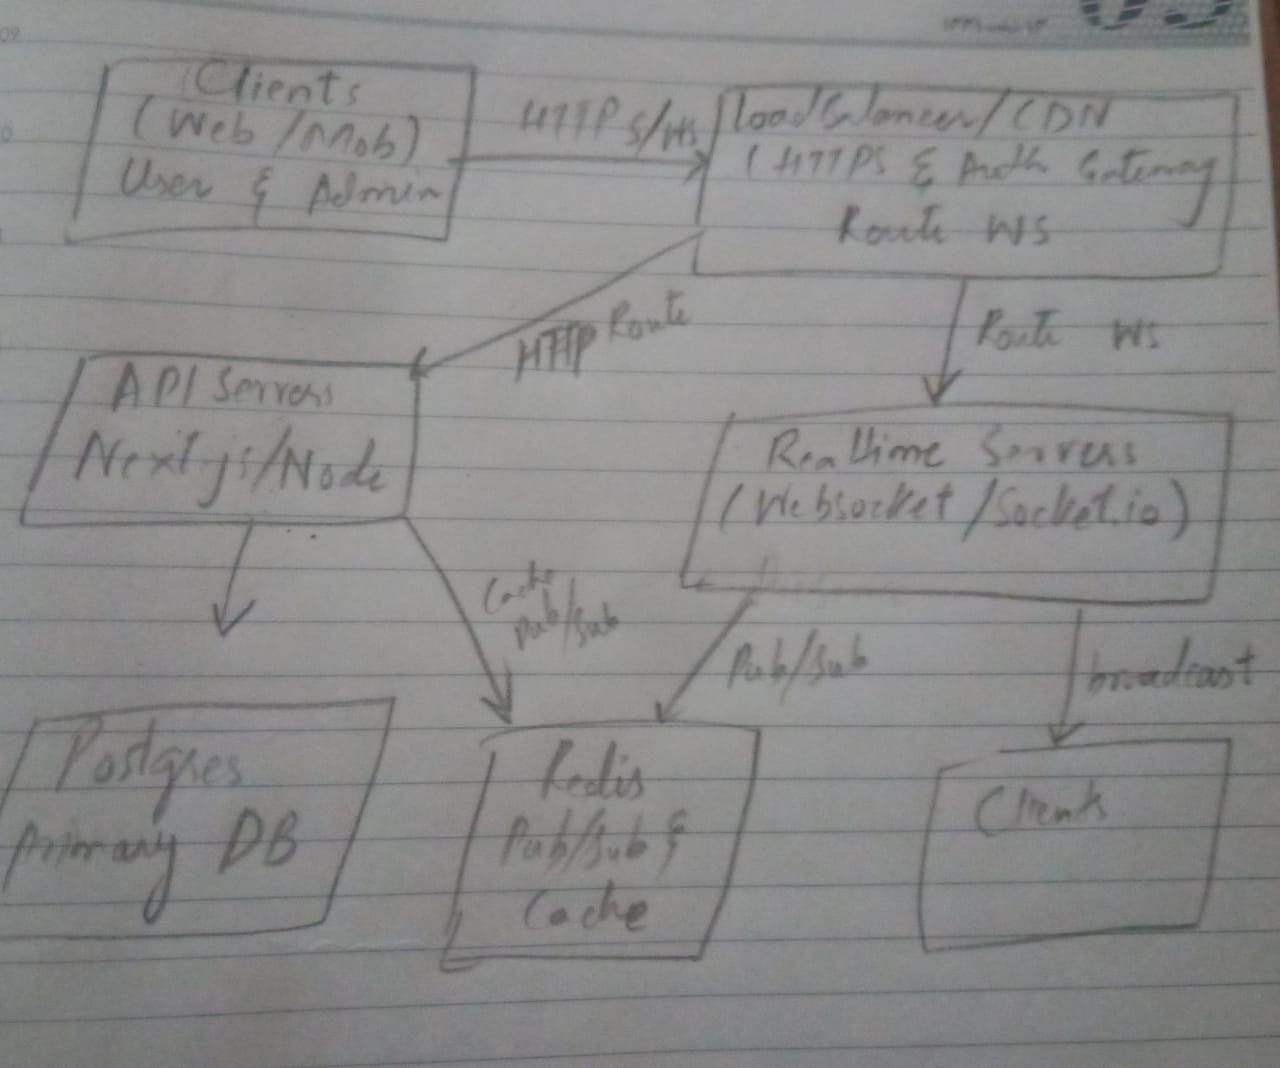 09
Clients
(Web/Mob)
User & Admin
HTTPS/WS
Load Balancer/CDN
(HTTPS & Auth Gateway
Route WS
HTTP Route
Route WS
API Servers
Next js/Node
Realtime Servers
(Websocket/Socket.io)
Cache
Pub/Sub
Pub/Sub
broadcast
Postgres
Primary DB
Redis
Pub/Sub &
Cache
Clients